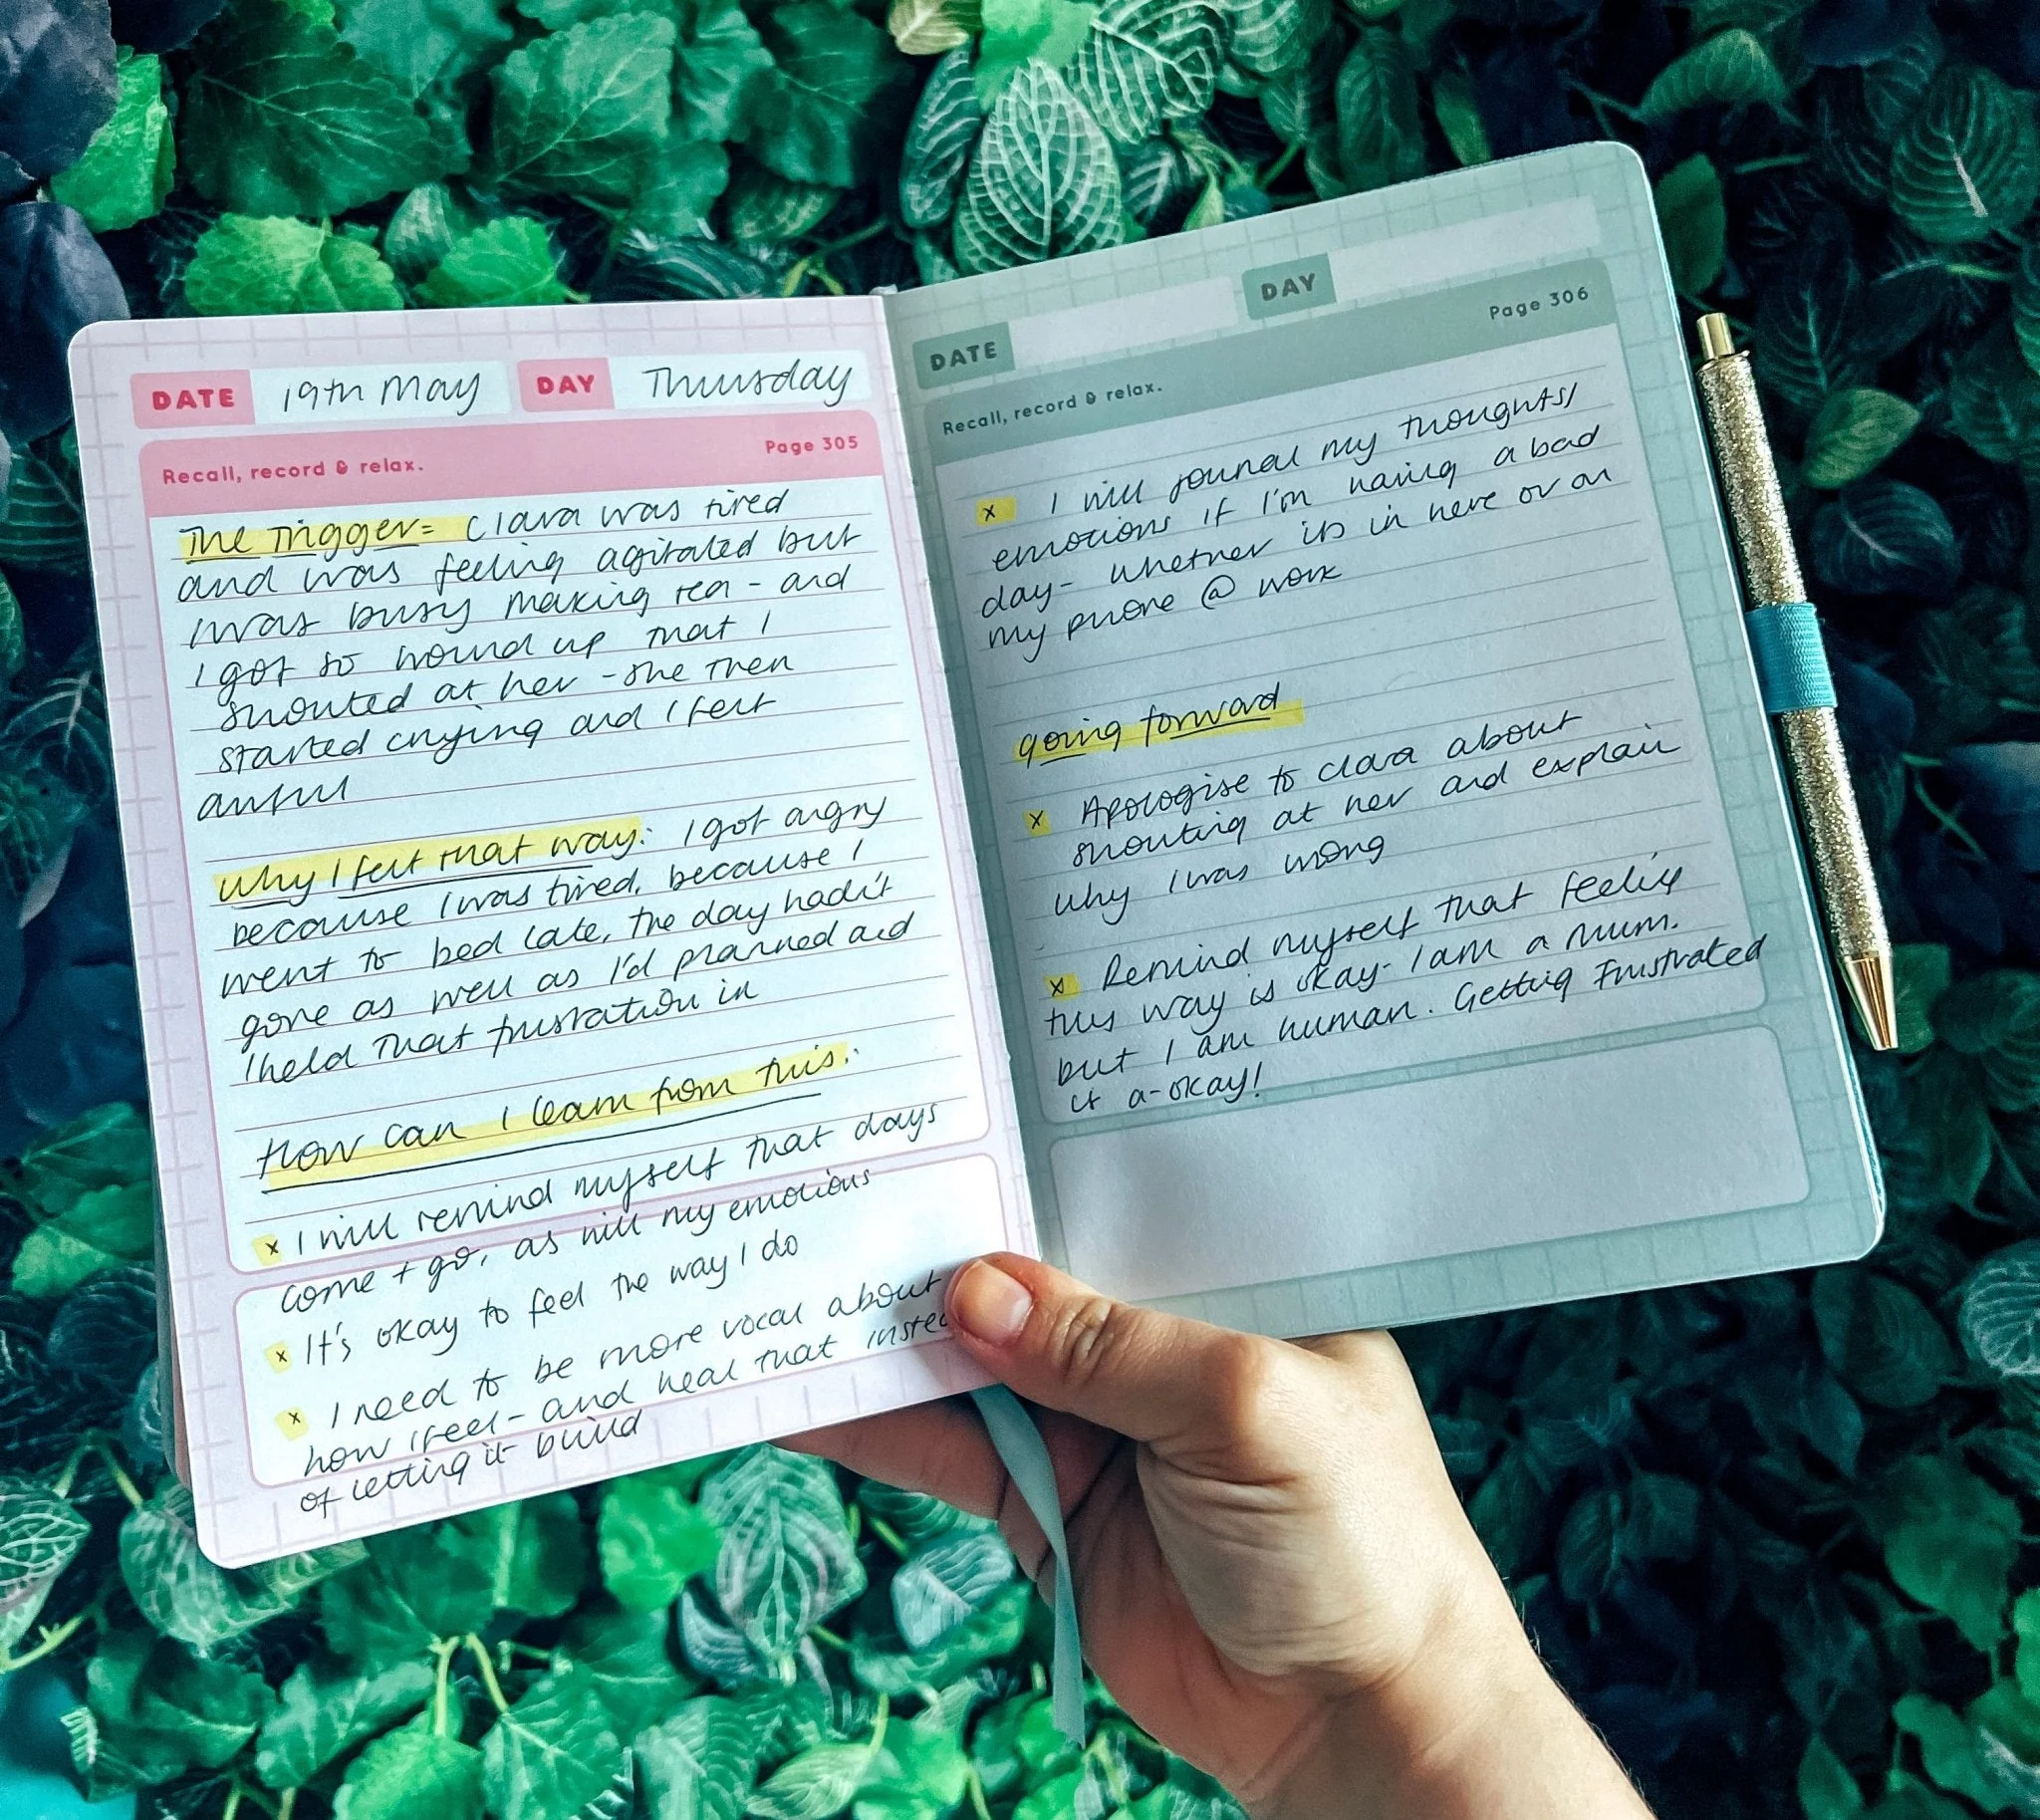 DATE 19th May DAY Thursday
Recall, record & relax. Page 305
The Trigger= Clara was tired
and was feeling agitated but
I was busy making tea - and
I got so wound up that I
shouted at her - she then
started crying and I felt
awful
Why I felt that way: I got angry
because I was tired, because I
went to bed late, the day hadn't
gone as well as I'd planned and
I held that frustration in
How can I learn from this:
x I will remind myself that days
come + go, as will my emotions
x It's okay to feel the way I do
x I need to be more vocal about
how I feel - and heal that
of letting it build
DATE DAY
Recall, record & relax. Page 306
x I will journal my thoughts/
emotions if I'm having a bad
day - whether its in here or on
my phone @ work
going forward
x Apologise to Clara about
shouting at her and explain
why I was wrong
x Remind myself that feeling
this way is okay - I am a mum.
but I am human. Getting Frustrated
is a-okay!